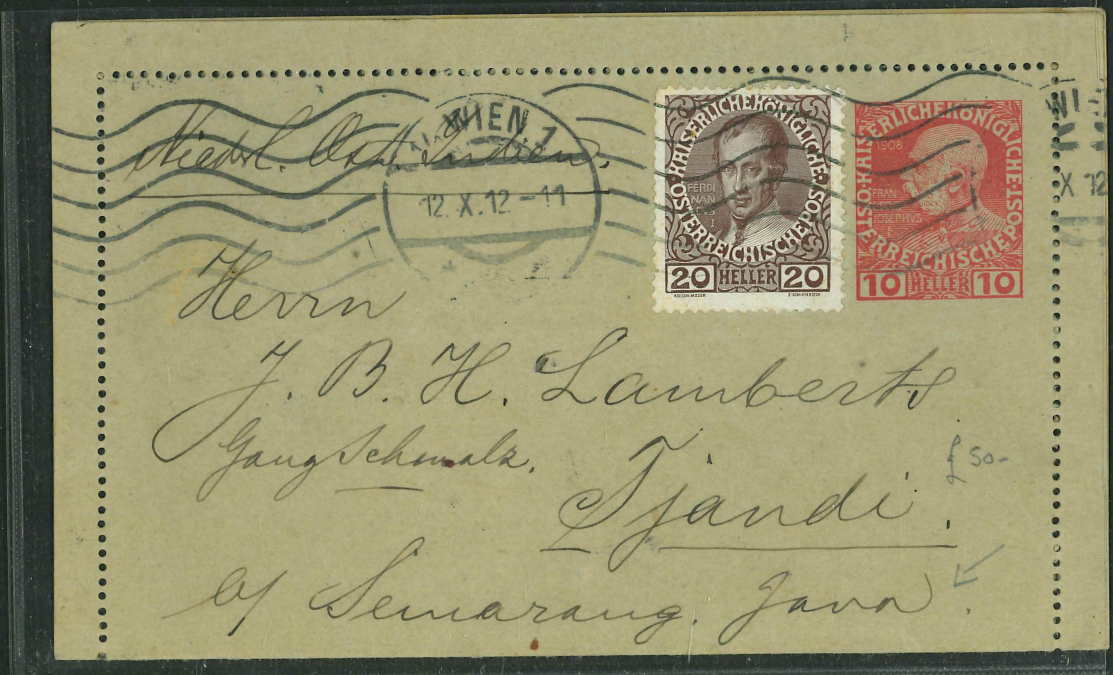 Niedrl. Ost Indien.
WIEN 1
12.X.12-11
KAISERLICHE KÖNIGLICHE ÖSTERREICHISCHE POST
FERDI
NAN
DVS
20 HELLER 20
KOLOM.MOSER
F.SCHIRNBÖCK
KAISERLICHE KÖNIGLICHE ÖSTERREICHISCHE POST
1908
FRAN
IOSEPHVS
I
10 HELLER 10
WI
X.12
Herrn
J. B. H. Lamberts
Gang Schmalz.
£ 50-
Tjandi.
b/ Semarang. Java.